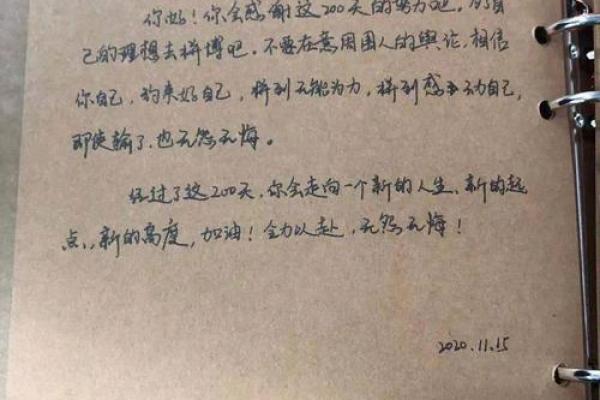 你好！你会感谢这200天的努力吧，为自
己的理想去拼博吧。不要在意周围人的舆论，相信
你自己，约束好自己，拼到无能为力，拼到感动自己，
即使输了，也无怨无悔。
经过了这200天，你会走向一个新的人生、新的起
点、新的高度，加油！全力以赴，无怨无悔！
2020.11.15